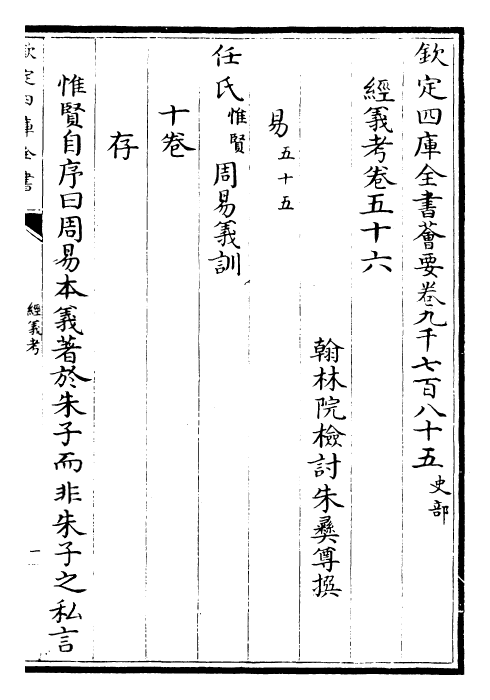 欽定四庫全書薈要卷九千七百八十五 史部
經義考卷五十六
翰林院檢討朱彝尊撰
易五十五
任氏惟賢周易義訓
十卷
存
惟賢自序曰周易本義著於朱子而非朱子之私言
欽定四庫全書
經義考
一